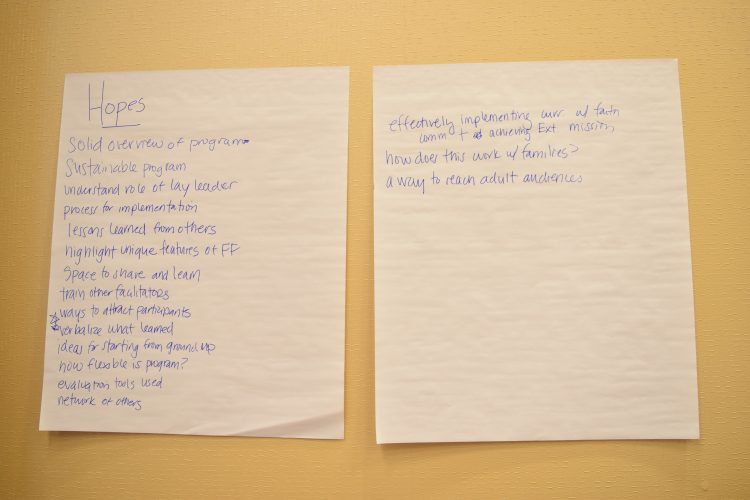 Hopes
Solid overview of program
Sustainable program
understand role of lay leader
process for implementation
lessons learned from others
highlight unique features of FF
Space to share and learn
train other facilitators
ways to attract participants
verbalize what learned
ideas for starting from ground up
how flexible is program?
evaluation tools used
network of others
effectively implementing curr w/ faith
comm + achieving Ext mission
how does this work w/ families?
a way to reach adult audiences